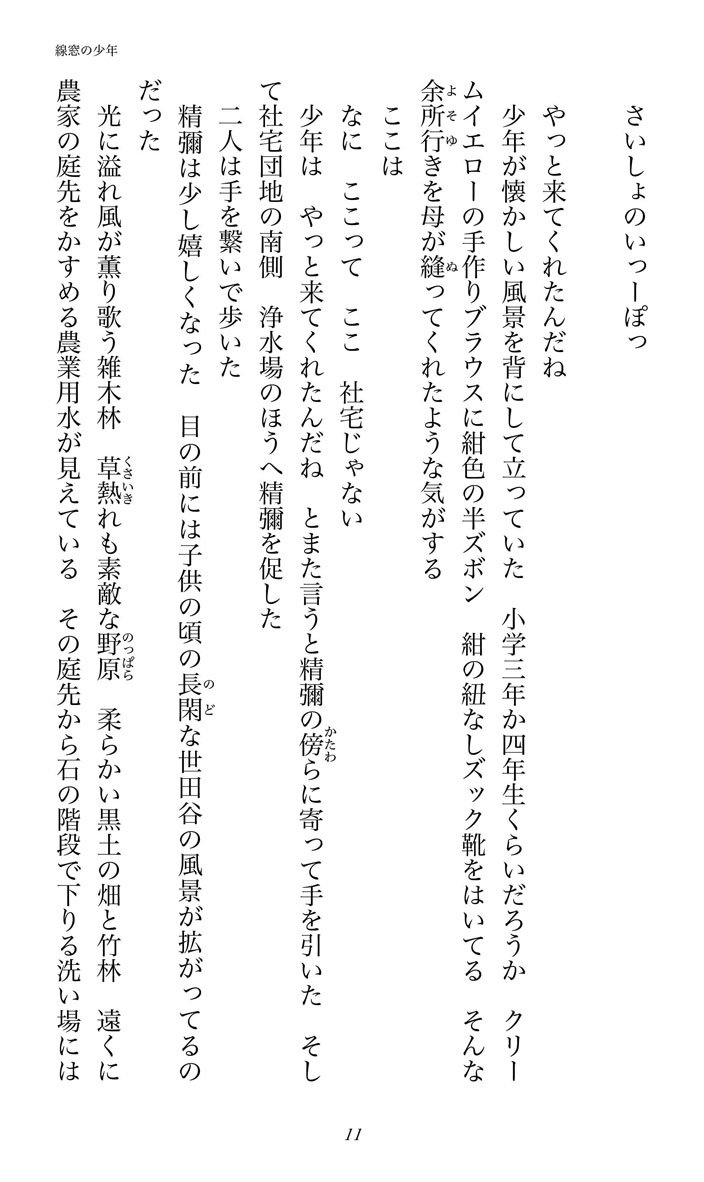 線窓の少年
さいしょのいっーぽっ
やっと来てくれたんだね
少年が懐かしい風景を背にして立っていた　小学三年か四年生くらいだろうか　クリー
ムイエローの手作りブラウスに紺色の半ズボン　紺の紐なしズック靴をはいてる　そんな
余所行きを母が縫ってくれたような気がする
ここは
なに　ここって　ここ　社宅じゃない
少年は　やっと来てくれたんだね　とまた言うと精彌の傍らに寄って手を引いた　そし
て社宅団地の南側　浄水場のほうへ精彌を促した
二人は手を繋いで歩いた
精彌は少し嬉しくなった　目の前には子供の頃の長閑な世田谷の風景が拡がってるの
だった
光に溢れ風が薫り歌う雑木林　草熱れも素敵な野原　柔らかい黒土の畑と竹林　遠くに
農家の庭先をかすめる農業用水が見えている　その庭先から石の階段で下りる洗い場には
11